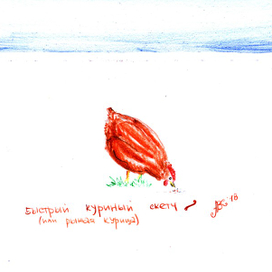 Быстрый куриный скетч
(или рыжая курица)
'18